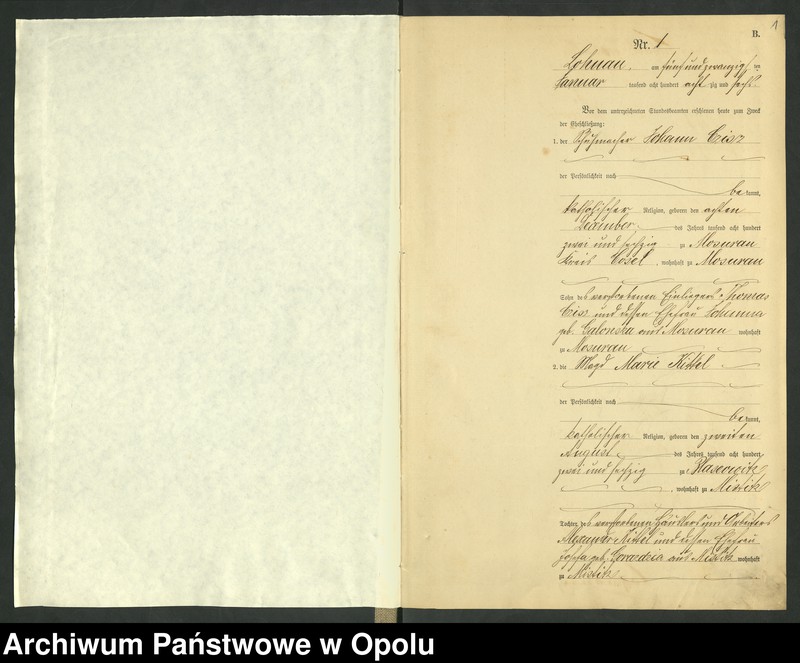 1
B.
Nr. 1
Lohnau, am fünfundzwanzigsten
Januar tausend acht hundert achtzig und sechs.
Vor dem unterzeichneten Standesbeamten erschienen heute zum Zweck
der Eheschließung:
1. der Schuhmacher Johann Cisz
der Persönlichkeit nach
be kannt,
katholischer Religion, geboren den achten
Dezember des Jahres tausend acht hundert
zwei und sechzig zu Mosurau
Kreis Cosel, wohnhaft zu Mosurau
Sohn des verstorbenen Einliegers Thomas
Cisz und dessen Ehefrau Johanna
geb. aus Mosurau wohnhaft
zu Mosurau
2. die Magd Marie Kittel
der Persönlichkeit nach
be kannt,
katholischer Religion, geboren den zweiten
August des Jahres tausend acht hundert
zwei und sechzig zu
, wohnhaft zu Mistitz
Tochter des verstorbenen Häuslers und Arbeiters
Kittel und dessen Ehefrau
geb. aus Mistitz wohnhaft
zu Mistitz
Archiwum Państwowe w Opolu